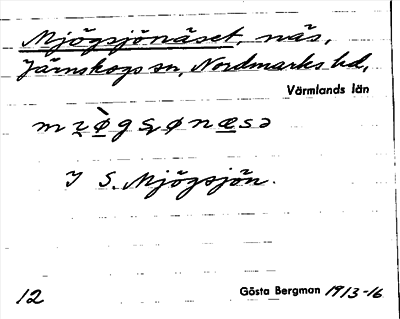 Mjögsjönäset, näs,
Järnskogs sn, Nordmarks hd,
Värmlands län
I S. Mjögsjön.
12 Gösta Bergman 1913-16